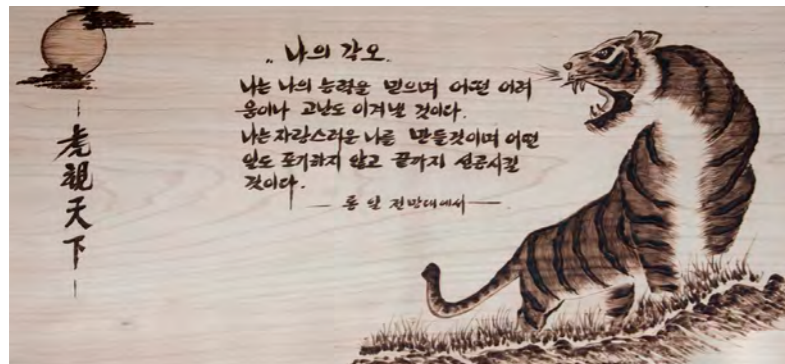 虎視天下
나의 각오
나는 나의 능력을 믿으며 어떤 어려
움이나 고난도 이겨낼 것이다.
나는 자랑스러운 나를 만들것이며 어떤
일도 포기하지 않고 끝까지 성공시킬
것이다.
통일 전망대에서